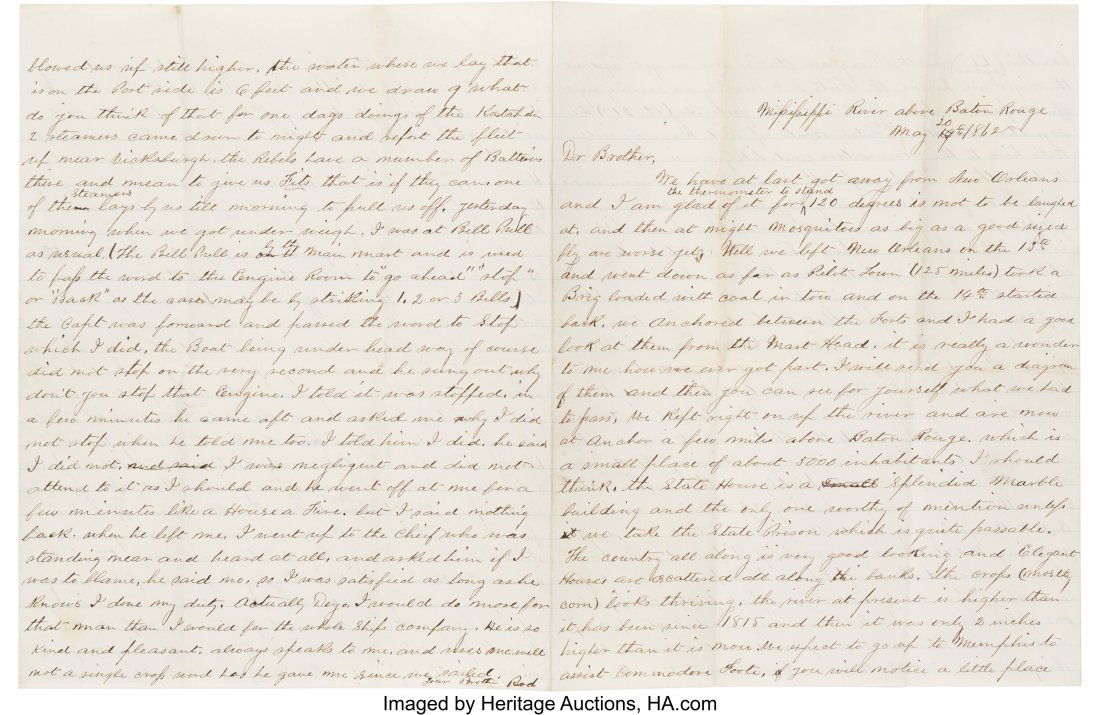 Mississippi River above Baton Rouge
May 20th 1862
Dr Brother,
We have at last got away from New Orleans
and I am glad of it for the thermometer to stand 120 degrees is not to be laughed
at, and then at night Mosquitoes as big as a good sized
fly are worse yet, Well we left New Orleans on the 13th
and went down as far as Pilot Town (125 miles) took a
Brig loaded with coal in tow and on the 14th started
back, we Anchored between the Forts and I had a good
look at them from the Mast Head, it is really a wonder
to me how we ever got past, I will send you a diagram
of them and then you can see for yourself what we had
to pass, We Kept right on up the river and are now
at Anchor a few miles above Baton Rouge, which is
a small place of about 5000 inhabitants I should
think, the State House is a small Splendid Marble
building and the only one worthy of mention unless
we take the State Prison which is quite passable.
The country all along is very good looking and Elegant
Houses are scattered all along the banks, the crops (mostly
corn) looks thriving, the river at present is higher than
it has been since 1815 and then it was only 2 inches
higher than it is now We expect to go up to Memphis to
assist Commodore Foote, if you will notice a little place
blowed us up still higher, the water where we lay that
is on the Port side is 6 feet and we draw 9 what
do you think of that for one days doings of the Katahdin
2 steamers came down to night and report the fleet
up near Vicksburgh, the Rebels have a number of Batteries
there and mean to give us Fits that is if they can, one
of the steamers lays by us till morning to pull us off, yesterday
morning when we got under weigh, I was at Bell Pull
as usual (The Bell Pull is by the Main mast and is used
to pass the word to the Engine Room to "go ahead" "stop"
or "Back" as the case may be by striking 1, 2 or 3 Bells)
the Capt was forward and passed the word to Stop
which I did, the Boat being under head way of course
did not stop on the very second and he sung out why
don't you stop that Engine, I told it was stopped, in
a few minutes he came aft and asked me why I did
not stop when he told me too. I told him I did, he said
I did not, and said I was negligent and did not
attend to it as I should and he went off at me for a
few minutes like a House a Fire, but I said nothing
back. when he left me, I went up to the chief who was
standing near and heard it all, and asked him if I
was to blame, he said no, so I was satisfied as long as he
Knows I done my duty. Actually I would do more for
that man than I would for the whole Ships company. He is so
Kind and pleasant, always speaks to me, and uses me well
not a single cross word has he gave me since we sailed
Your Brothr Rod
Imaged by Heritage Auctions, HA.com